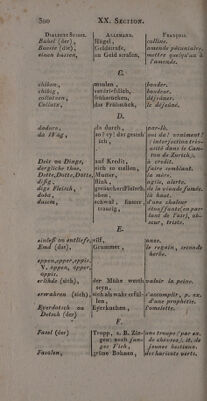 300 XX. SECTION.
DIALECTE SUISSE. ALLEMAND. FRANÇAIS.
Bühel (der), Hügel, colline.
Buosse (die), Geldstrafe, amende pécuniaire.
einen büssen, an Geld strafen, mettre quelqu'un à l'amende.
C.
chiben, schmollen, bouder.
chibig, verdrüsslich, boudeur.
collatzen, frühstücken, déjeuner.
Collatz, das Frühstück, le déjeûné.
D.
dadurn, da durch, par-là.
da Wäg, so? ey! das gesteh ich, oui da! vraiment! (interjection très-usitée dans le Canton de Zurich.)
Deis on Dings, auf Kredit, à crédit.
dergliche thue, sich stellen, faire semblant.
Dotte, Dotte, Mutter, la mère.
dösig, Biss, agile, alerte.
digs Fleisch, geräuchertFleisch, de la viande fumée.
doba, oben, là haut.
dusem, schwul, finster traurig, d'une chaleur étouffante (en parlant de l'air), obscur, triste.
E.
eilf, onze.
Emd (das), Grummet, le regain, seconde herbe.
eppen, epper, eppis.
V. öppen, opper, oppis.
erlihde (sich), der Mühe werth seyn, valoir la peine.
erwahren (sich), sich als wahr erfüllen, s'accomplir, p. ex. d'une prophétie.
Eyerdotsch ou Dotsch (der) Eyerkuchen, l'omelette.
F.
Fasel (der) Trupp, z. B. Ziegen; auch junges Vieh, une troupe (par ex. de chèves), it. de jeunes bestiaux.
Fasolen, grüne Bohnen, des haricots verts.